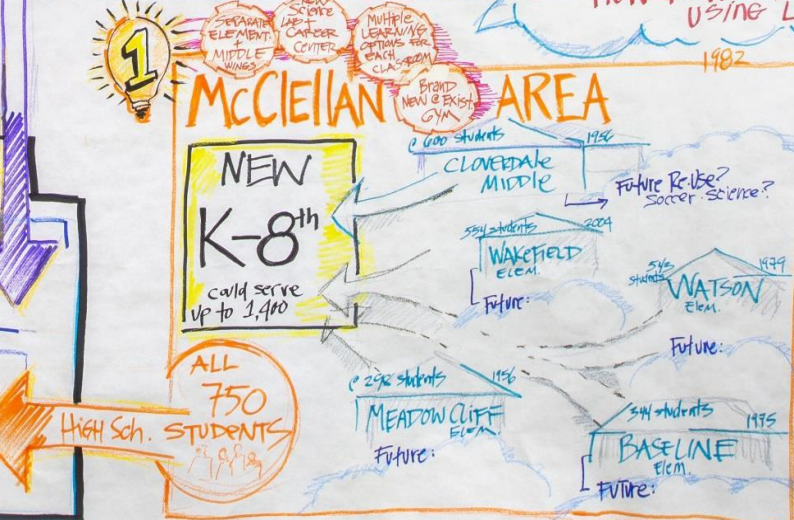 1
SEPARATE
ELEMENT.
+
MIDDLE
WINGS
NEW
Science
LAB +
CAREER
CENTER
MULTIPLE
LEARNING
OPTIONS FOR
EACH
CLASSROOM
Brand
NEW @ Exist.
GYM
USING
1982
McClellan AREA
NEW
K-8th
could serve
up to 1,400
@ 600 students
1956
CLOVERDALE
MIDDLE
Future Re-Use?
Soccer. Science?
554 students
2004
WAKEFIELD
ELEM.
Future:
students
1979
WATSON
Elem.
Future:
@ 298 students
1956
MEADOWCLIFF
ELEM.
Future:
344 students
1975
BASELINE
Elem.
Future:
ALL
750
STUDENTS
HIGH Sch.